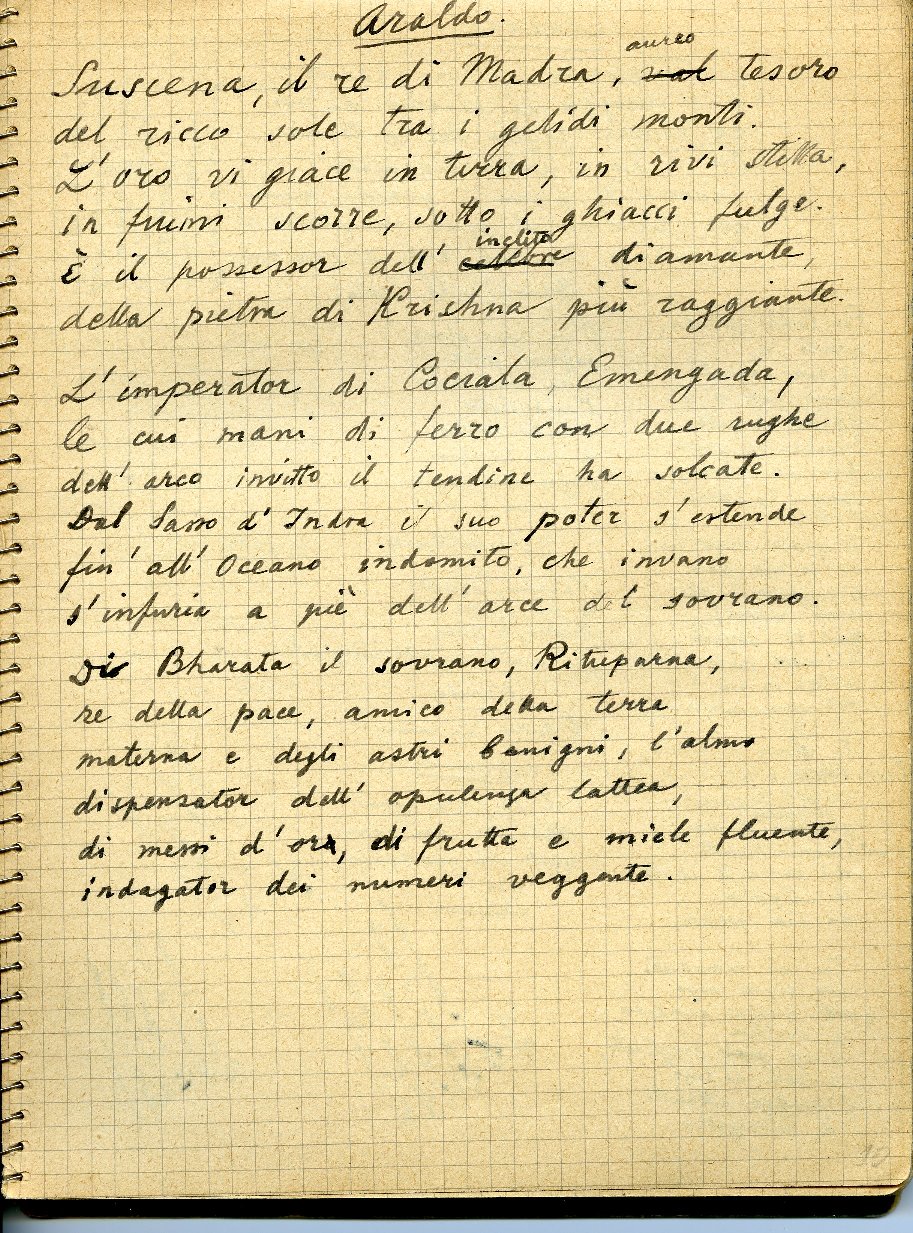 Araldo.
aureo
Suscena, il re di Madra, val tesoro
del ricco sole tra i gelidi monti.
L'oro vi giace in terra, in rivi stilla,
in fiumi scorre, sotto i ghiacci fulge.
inclito
È il possessor dell' celebre diamante,
della pietra di Krishna più raggiante.
L'imperator di Cociala, Emengada,
le cui mani di ferro con due rughe
dell' arco invitto il tendine ha solcate.
Dal Sasso d'Indra il suo poter s'estende
fin' all' Oceano indomito, che invano
s'infuria a piè dell' arce del sovrano.
Di Bharata il sovrano, Rituparna,
re della pace, amico della terra
materna e degli astri benigni, l'almo
dispensator dell' opulenza lattea,
di messi d'oro, di frutta e miele fluente,
indagator dei numeri veggente.